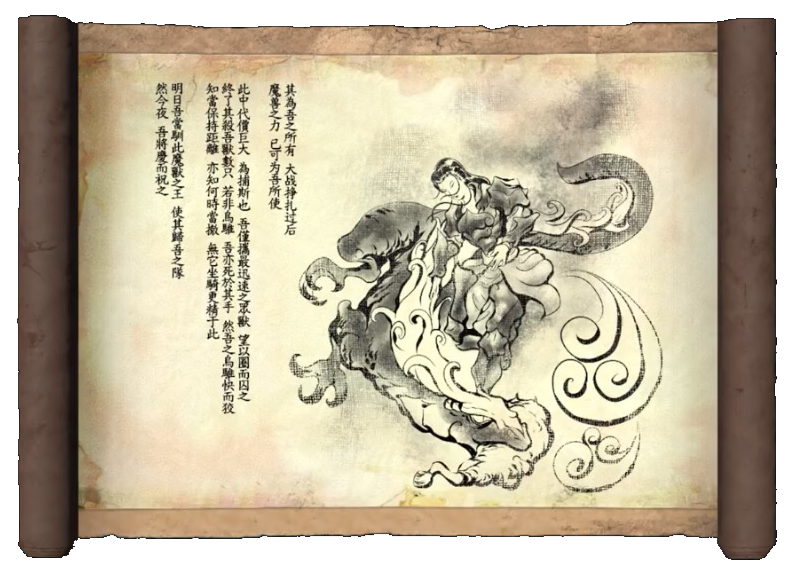 其為吾之所有 大战挣扎过后
魔兽之力 已可为吾所使
此中代價巨大 為捕斯也 吾僅攜最迅速之眾獸 望以圈而囚之
終了其殺吾獸數只 若非烏騅 吾亦死於其手 然吾之烏騅快而狡
知當保持距離 亦知何時當撤 無它坐騎更精于此
明日吾當馴此魔獸之王 使其歸吾之隊
然今夜 吾將慶而祝之